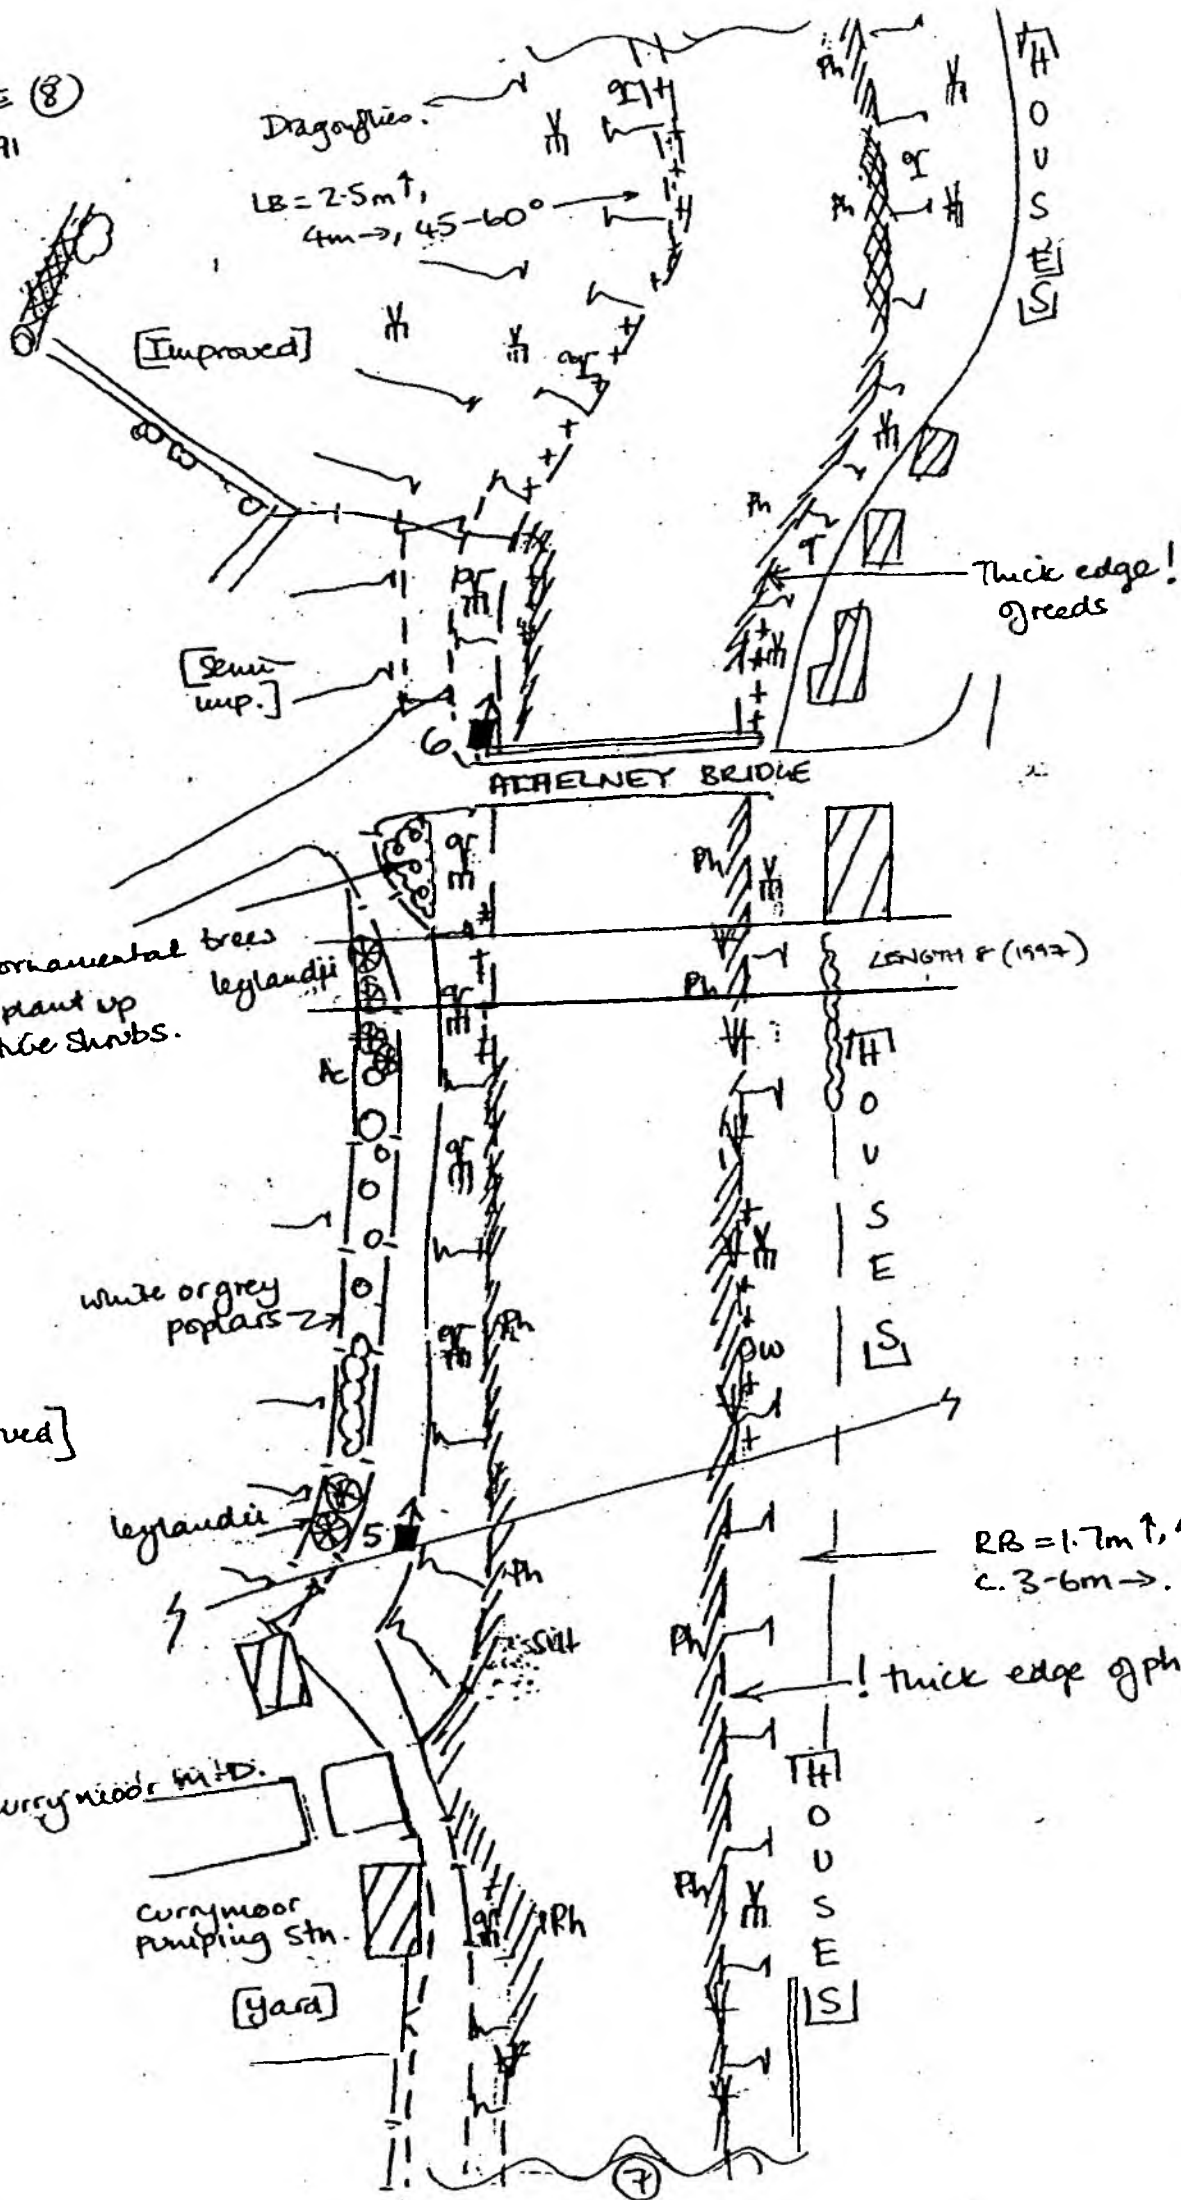 8
91
Dragonflies.
LB = 2.5m ↑,
4m →, 45-60°
[Improved]
Ph
gr
HOUSES
Ph
gr
gr
Ph
gr
Thick edge!
of reeds
[semi-
imp.]
gr
6
ATHELNEY BRIDGE
gr
Ph
ornamental trees
plant up
shrubs.
leylandii
Ph
LENGTH 8 (1997)
gr
Ac
[HOUSES]
gr
white or grey
poplars
gr
Ph
ow
ved]
leylandii
5
Ph
RB = 1.7m ↑,
c. 3-6m →.
silt
Ph
! thick edge of ph
Currymoor
[HOUSES]
Currymoor
Pumping Stn.
gr
Ph
Ph
[Yard]
7